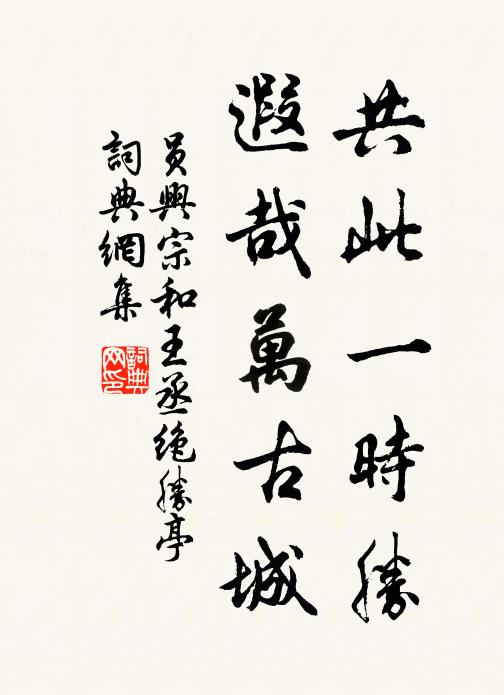 共此一時勝
遐哉萬古城
員興宗和王丞絶勝亭
詞典網集
詞典网印